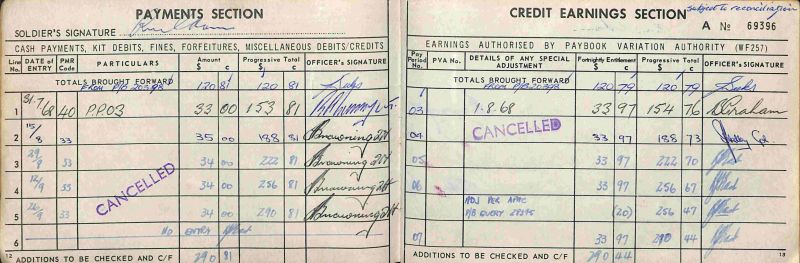 PAYMENTS SECTION
SOLDIER'S SIGNATURE
CASH PAYMENTS, KIT DEBITS, FINES, FORFEITURES, MISCELLANEOUS DEBITS/CREDITS
Line No. DATE of ENTRY PNR Code PARTICULARS Amount $ c Progressive Total $ c OFFICER'S SIGNATURE
TOTALS BROUGHT FORWARD 120 81 120 81
FROM P/B
1 31/7/68 40 P.P.03 33 00 153 81
2 15/8 33 35 00 188 81 Browning
3 29/8 33 34 00 222 81 Browning
4 12/9 33 34 00 256 81 Browning
5 26/9 33 34 00 290 81 Browning
CANCELLED
6 NO ENTRY
12 ADDITIONS TO BE CHECKED AND C/F 290 81
CREDIT EARNINGS SECTION
subject to reconciliation
A No 69396
EARNINGS AUTHORISED BY PAYBOOK VARIATION AUTHORITY (WF257)
Pay Period No. PVA No. DETAILS OF ANY SPECIAL ADJUSTMENT Fortnightly Entitlement $ c Progressive Total $ c OFFICER'S SIGNATURE
TOTALS BROUGHT FORWARD 120 79 120 79
FROM P/B
03 1.8.68 33 97 154 76 Graham
04 CANCELLED 33 97 188 73
05 33 97 222 70
06 33 97 256 67
ADJ PER APAC
P/B QUERY 28395 (20) 256 47
07 33 97 290 44
ADDITIONS TO BE CHECKED AND C/F 290 44
13